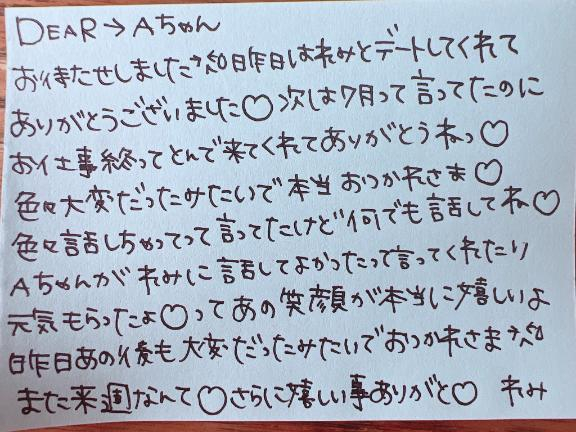 DEAR→Aちゃん
お待たせしました昨日はれみとデートしてくれて
ありがとうございました♡次は7月って言ってたのに
お仕事終ってとんで来てくれてありがとうねっ♡
色々大変だったみたいで本当おつかれさま♡
色々話しちゃってって言ってたけど何でも話してね♡
Aちゃんがれみに話してよかったって言ってくれたり
元気もらったよ♡ってあの笑顔が本当に嬉しいよ
昨日あの後も大変だったみたいでおつかれさま
また来週なんて♡さらに嬉しい事ありがと♡ れみ